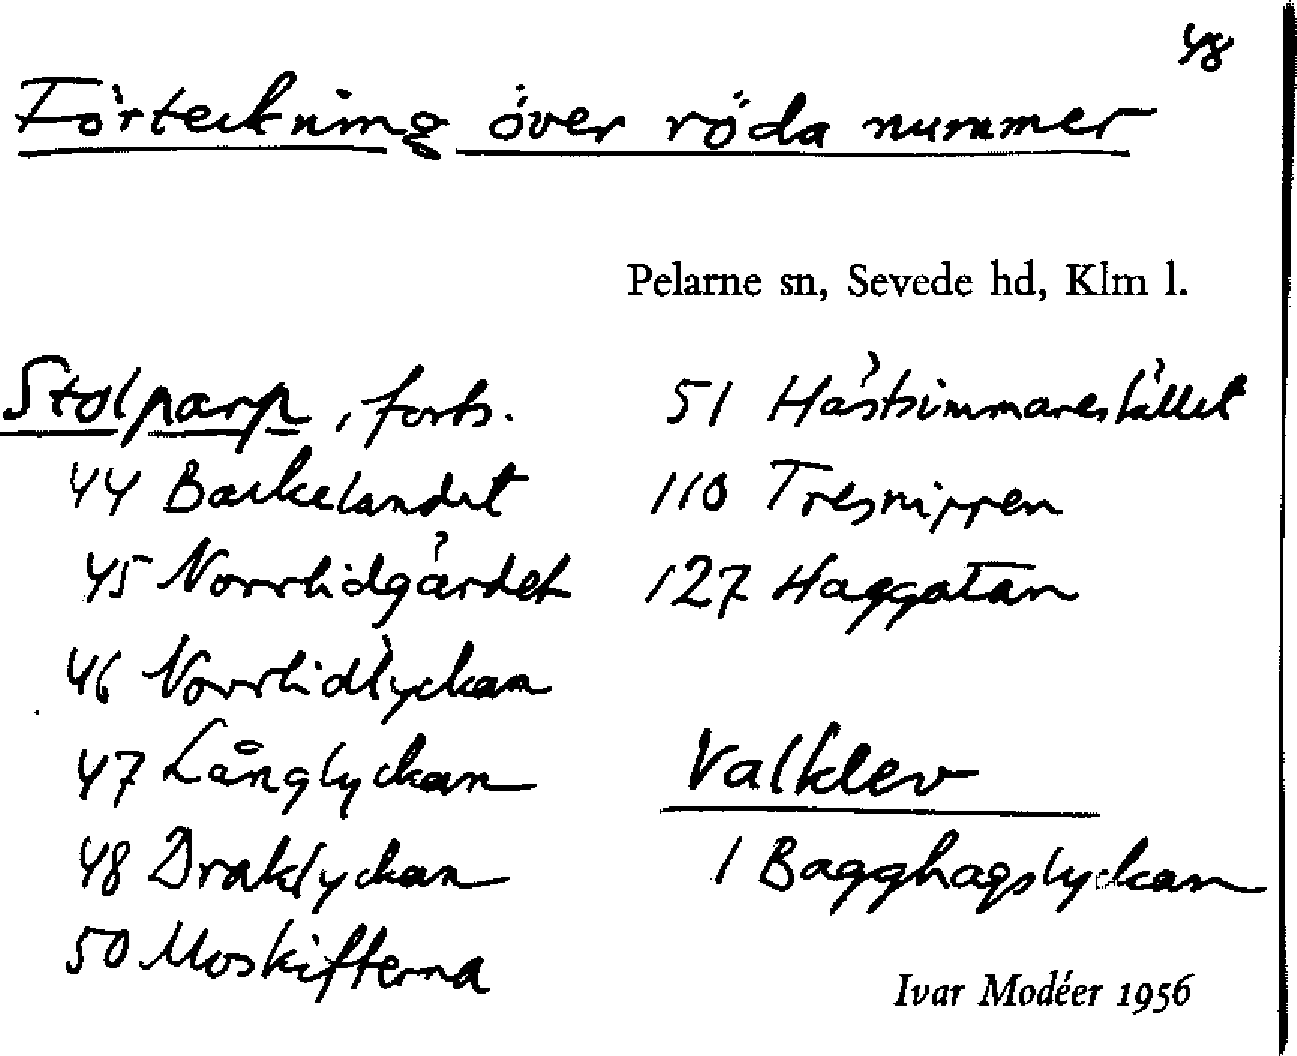 48
Förteckning över röda nummer
Pelarne sn, Sevede hd, Klm l.
Stolparp, forts.
44 Backelandet
45 Norrlidgärdet
46 Norrlidlyckan
47 Långlyckan
48 Draklyckan
50 Moskifterna
51 Hästsimmarestället
110 Tresnippen
127 Haggatan
Valklev
1 Bagghagslyckan
Ivar Modéer 1956